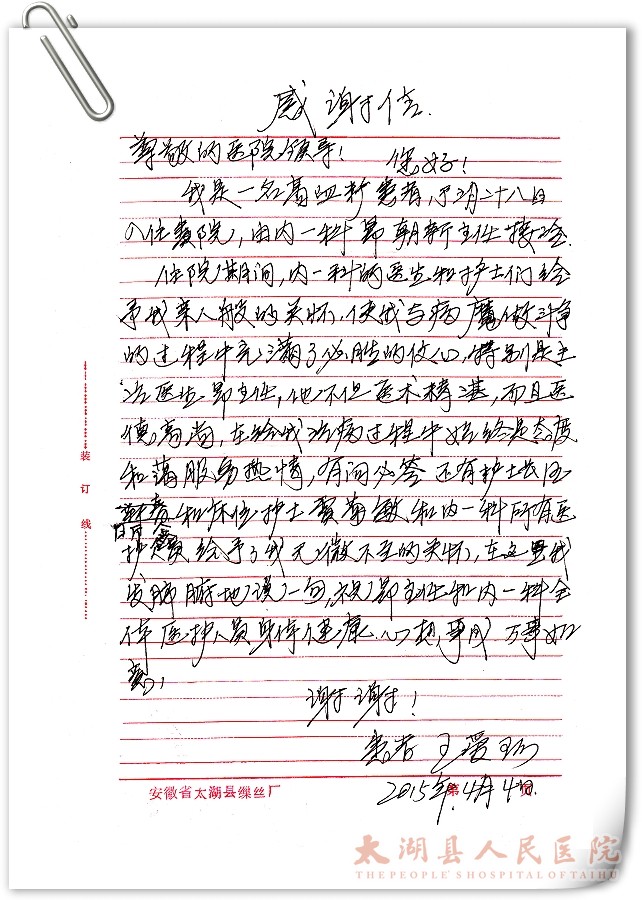 感谢信
尊敬的医院领导！
您好！
我是一名高血新患者，于3月二十八日
入住贵院，由内一科郭朝新主任接诊.
住院期间，内一科的医生和护士们给
予我亲人般的关怀，使我与病魔做斗争
的过程中充满了必胜的信心，特别是主
治医生郭主任，他不但医术精湛，而且医
德高尚，在给我治病过程中始终是态度
和蔼服务热情，有问必答 还有护士长
和床位护士贾菊敏和内一科所有医
护 给予了我无微不至的关怀，在这里我
发肺腑地说一句，祝郭主任和内一科全
体医护人员身体健康 心想事成 万事如
意，
谢谢！
患者 王爱
2015年4月4日.
装订线
安徽省太湖县缫丝厂 第 页
太湖县人民医院
THE PEOPLE'S HOSPITAL OF TAIHU